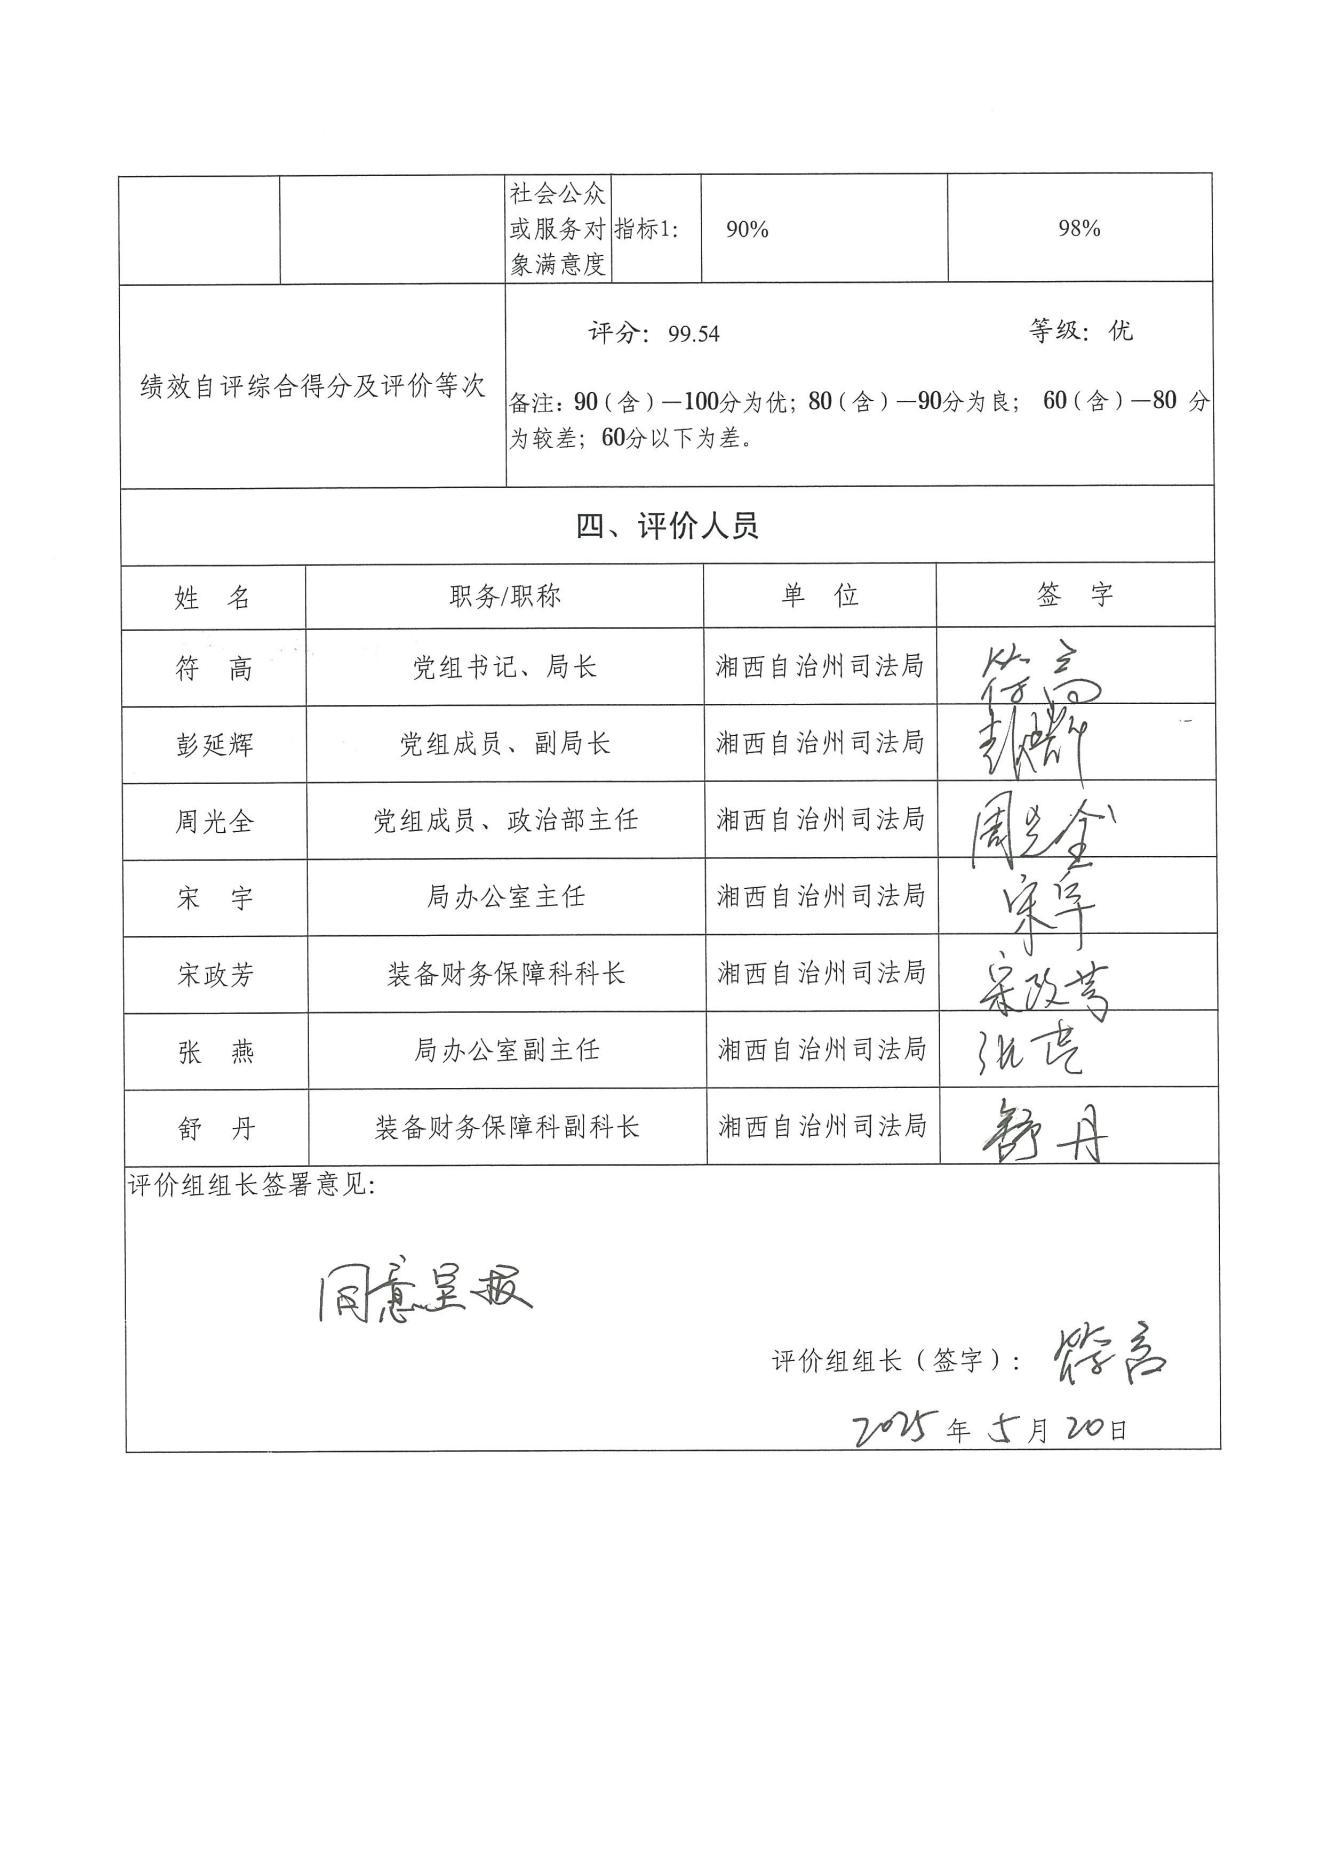 社会公众
或服务对 指标1: 90% 98%
象满意度
评分: 99.54 等级: 优
绩效自评综合得分及评价等次
备注: 90(含)—100分为优; 80(含)—90分为良; 60(含)—80 分
为较差; 60分以下为差。
四、评价人员
姓 名 职务/职称 单 位 签 字
符 高 党组书记、局长 湘西自治州司法局 符高
彭延辉 党组成员、副局长 湘西自治州司法局 彭延辉
周光全 党组成员、政治部主任 湘西自治州司法局 周光全
宋 宇 局办公室主任 湘西自治州司法局 宋宇
宋政芳 装备财务保障科科长 湘西自治州司法局 宋政芳
张 燕 局办公室副主任 湘西自治州司法局 张燕
舒 丹 装备财务保障科副科长 湘西自治州司法局 舒丹
评价组组长签署意见:
同意呈报
评价组组长(签字): 符高
2025年5月20日